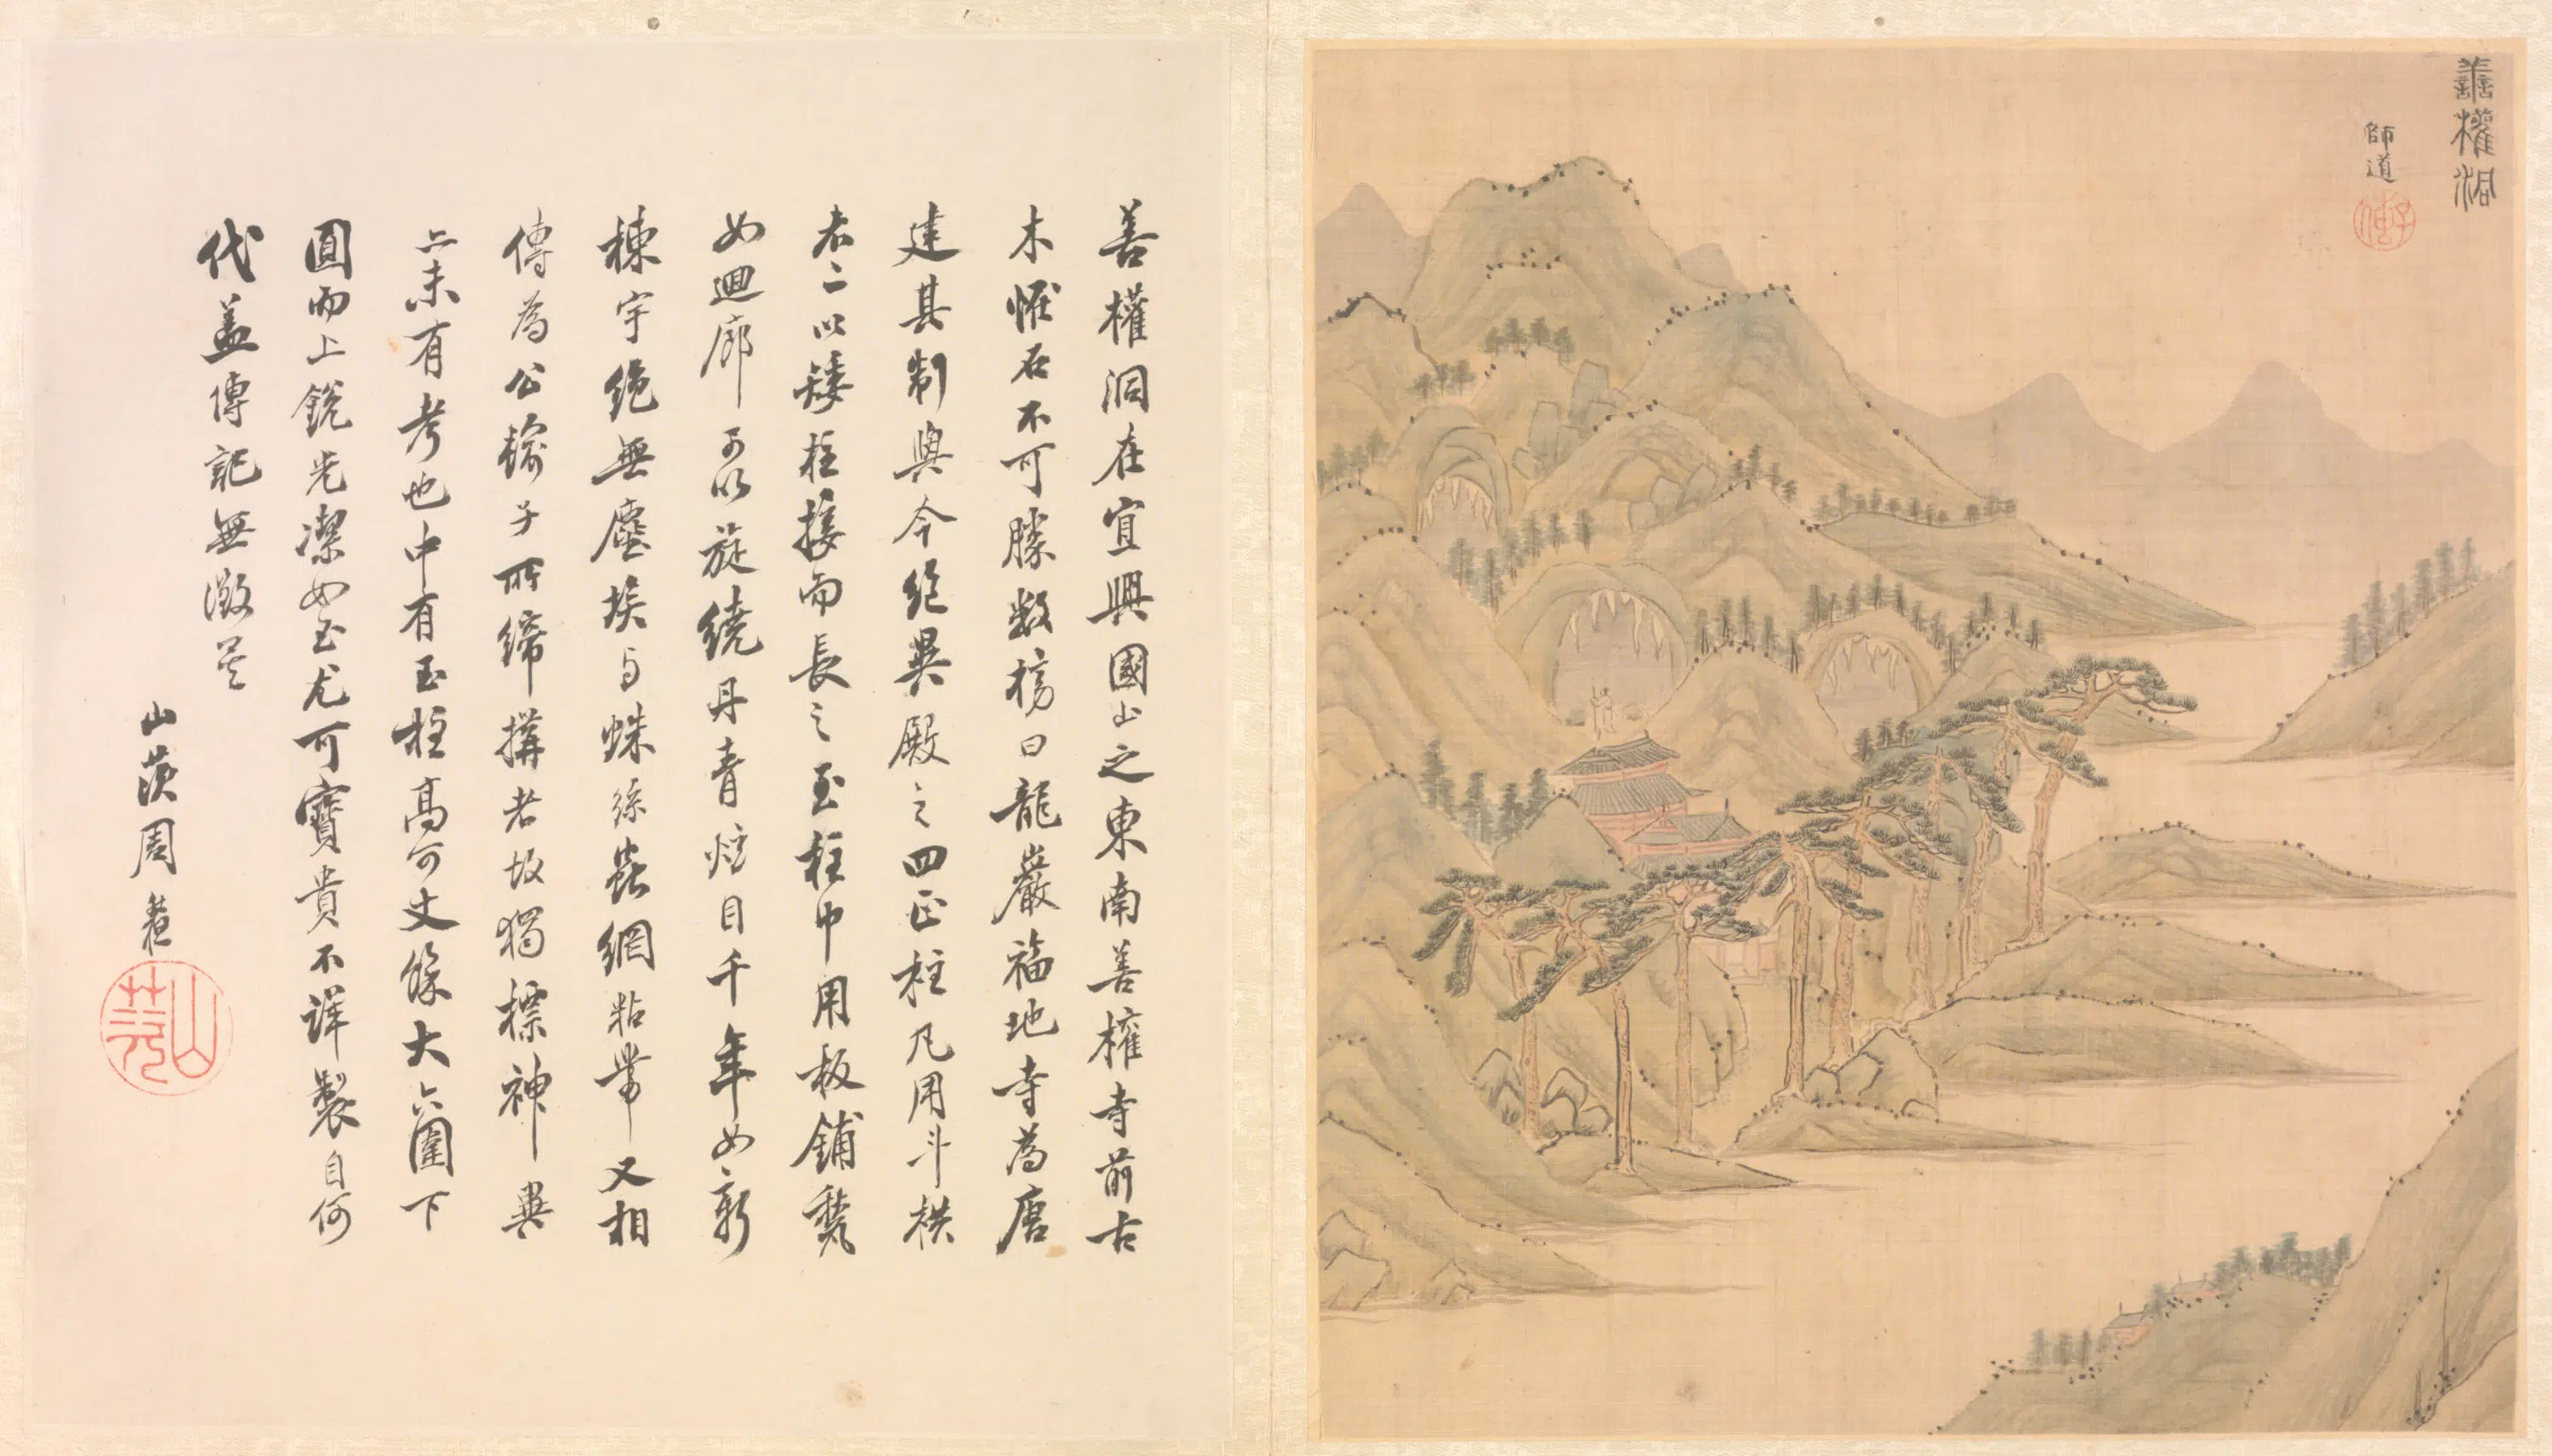 善權洞
師道
善權洞在宜興國山之東南善權寺前古
木恠石不可勝數榜曰龍巖福地寺為唐
建其制與今絕異殿之四正柱凡用斗栱
者二以矮柱接而長之至柱中用板鋪甃
如迴廊可以旋繞丹青炫目千年如新
棟宇絕無塵埃与蛛絲蟲網粘帶又相
傳為公輸子所締搆者故獨標神異
亦未有考也中有玉柱高可丈餘大六圍下
圓而上銳光潔如玉尤可寶貴不詳製自何
代盖傳記無徵矣
山茨周